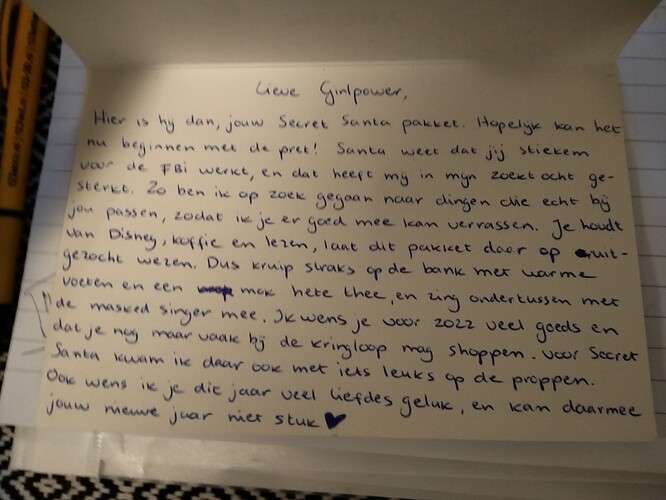 Lieve Girlpower,
Hier is hij dan, jouw Secret Santa pakket. Hopelijk kan het
nu beginnen met de pret! Santa weet dat jij stiekem
voor de FBi werkt, en dat heeft mij in mijn zoektocht ge-
sterkt. Zo ben ik op zoek gegaan naar dingen die echt bij
jou passen, zodat ik je er goed mee kan verrassen. Je houdt
van Disney, koffie en lezen, laat dit pakket daar op uit-
gezocht wezen. Dus kruip straks op de bank met warme
voeten en een mok hete thee, en zing ondertussen met
de masked singer mee. Ik wens je voor 2022 veel goeds en
dat je nog maar vaak bij de kringloop mag shoppen. Voor Secret
Santa kwam ik daar ook met iets leuks op de proppen.
Ook wens ik je dit jaar veel liefdes geluk, en kan daarmee
jouw nieuwe jaar niet stuk ♥